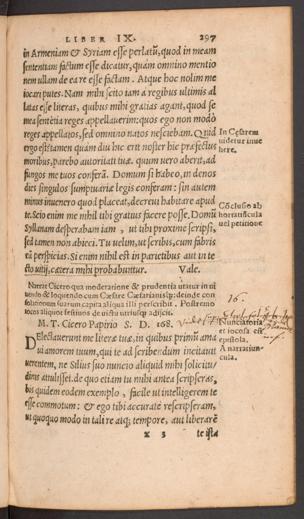 LIBER IX. 297
in Armeniam & Syriam esse perlatū, quod in meam
sententiam factum esse dicatur, quum omnino mentio
nem ullam de ea re esse factam. Atque hoc nolim me
iocari putes. Nam mihi scito iam a regibus ultimis al
latas esse literas, quibus mihi gratias agant, quod se
mea sentētia reges appellauerim: quos ego non modò
reges appellatos, sed omnino natos nesciebam. Quid
ergo est? tamen quàm diu hic erit noster hic præfectus
moribus, parebo autoritati tuæ. quum uero aberit, ad
fungos me tuos conferā. Domum si habeo, in denos
dies singulos sumptuariæ legis conferam: sin autem
minus inuenero quod placeat, decreui habitare apud
te. Scio enim me nihil tibi gratius facere posse. Domū
Syllanam desperabam iam, ut tibi proxime scripsi,
sed tamen non abieci. Tu uelim, ut scribis, cum fabris
eā perspicias. Si enim nihil est in parietibus aut in te
cto uitij, cætera mihi probabuntur. Vale.
In Cesarem
uidetur inue
here.
Cōclusio ab
hortatiūcula
uel petitione
Narrat Cicero qua moderatione & prudentia utatur in ui
uendo & loquendo cum Cæsare
iocos aliquos festiuos de
M. T. Cicero Papirio S. D. 168.
16.
Nunciatoria
et iocosa est
epistola.
A narratiun-
cula.
Delectauerunt me literæ tuæ, in quibus primū ama
ui amorem tuum, qui te ad scribendum incitauit
uerentem, ne Silius suo nuncio aliquid mihi solicitu/
dinis attulisset. de quo etiam tu mihi antea scripseras,
bis quidem eodem exemplo, facile ut intelligerem te
esse commotum: & ego tibi accurate rescripseram,
ut quoquo modo in tali re atq; tempore, aut liberarē
x 3 te ista